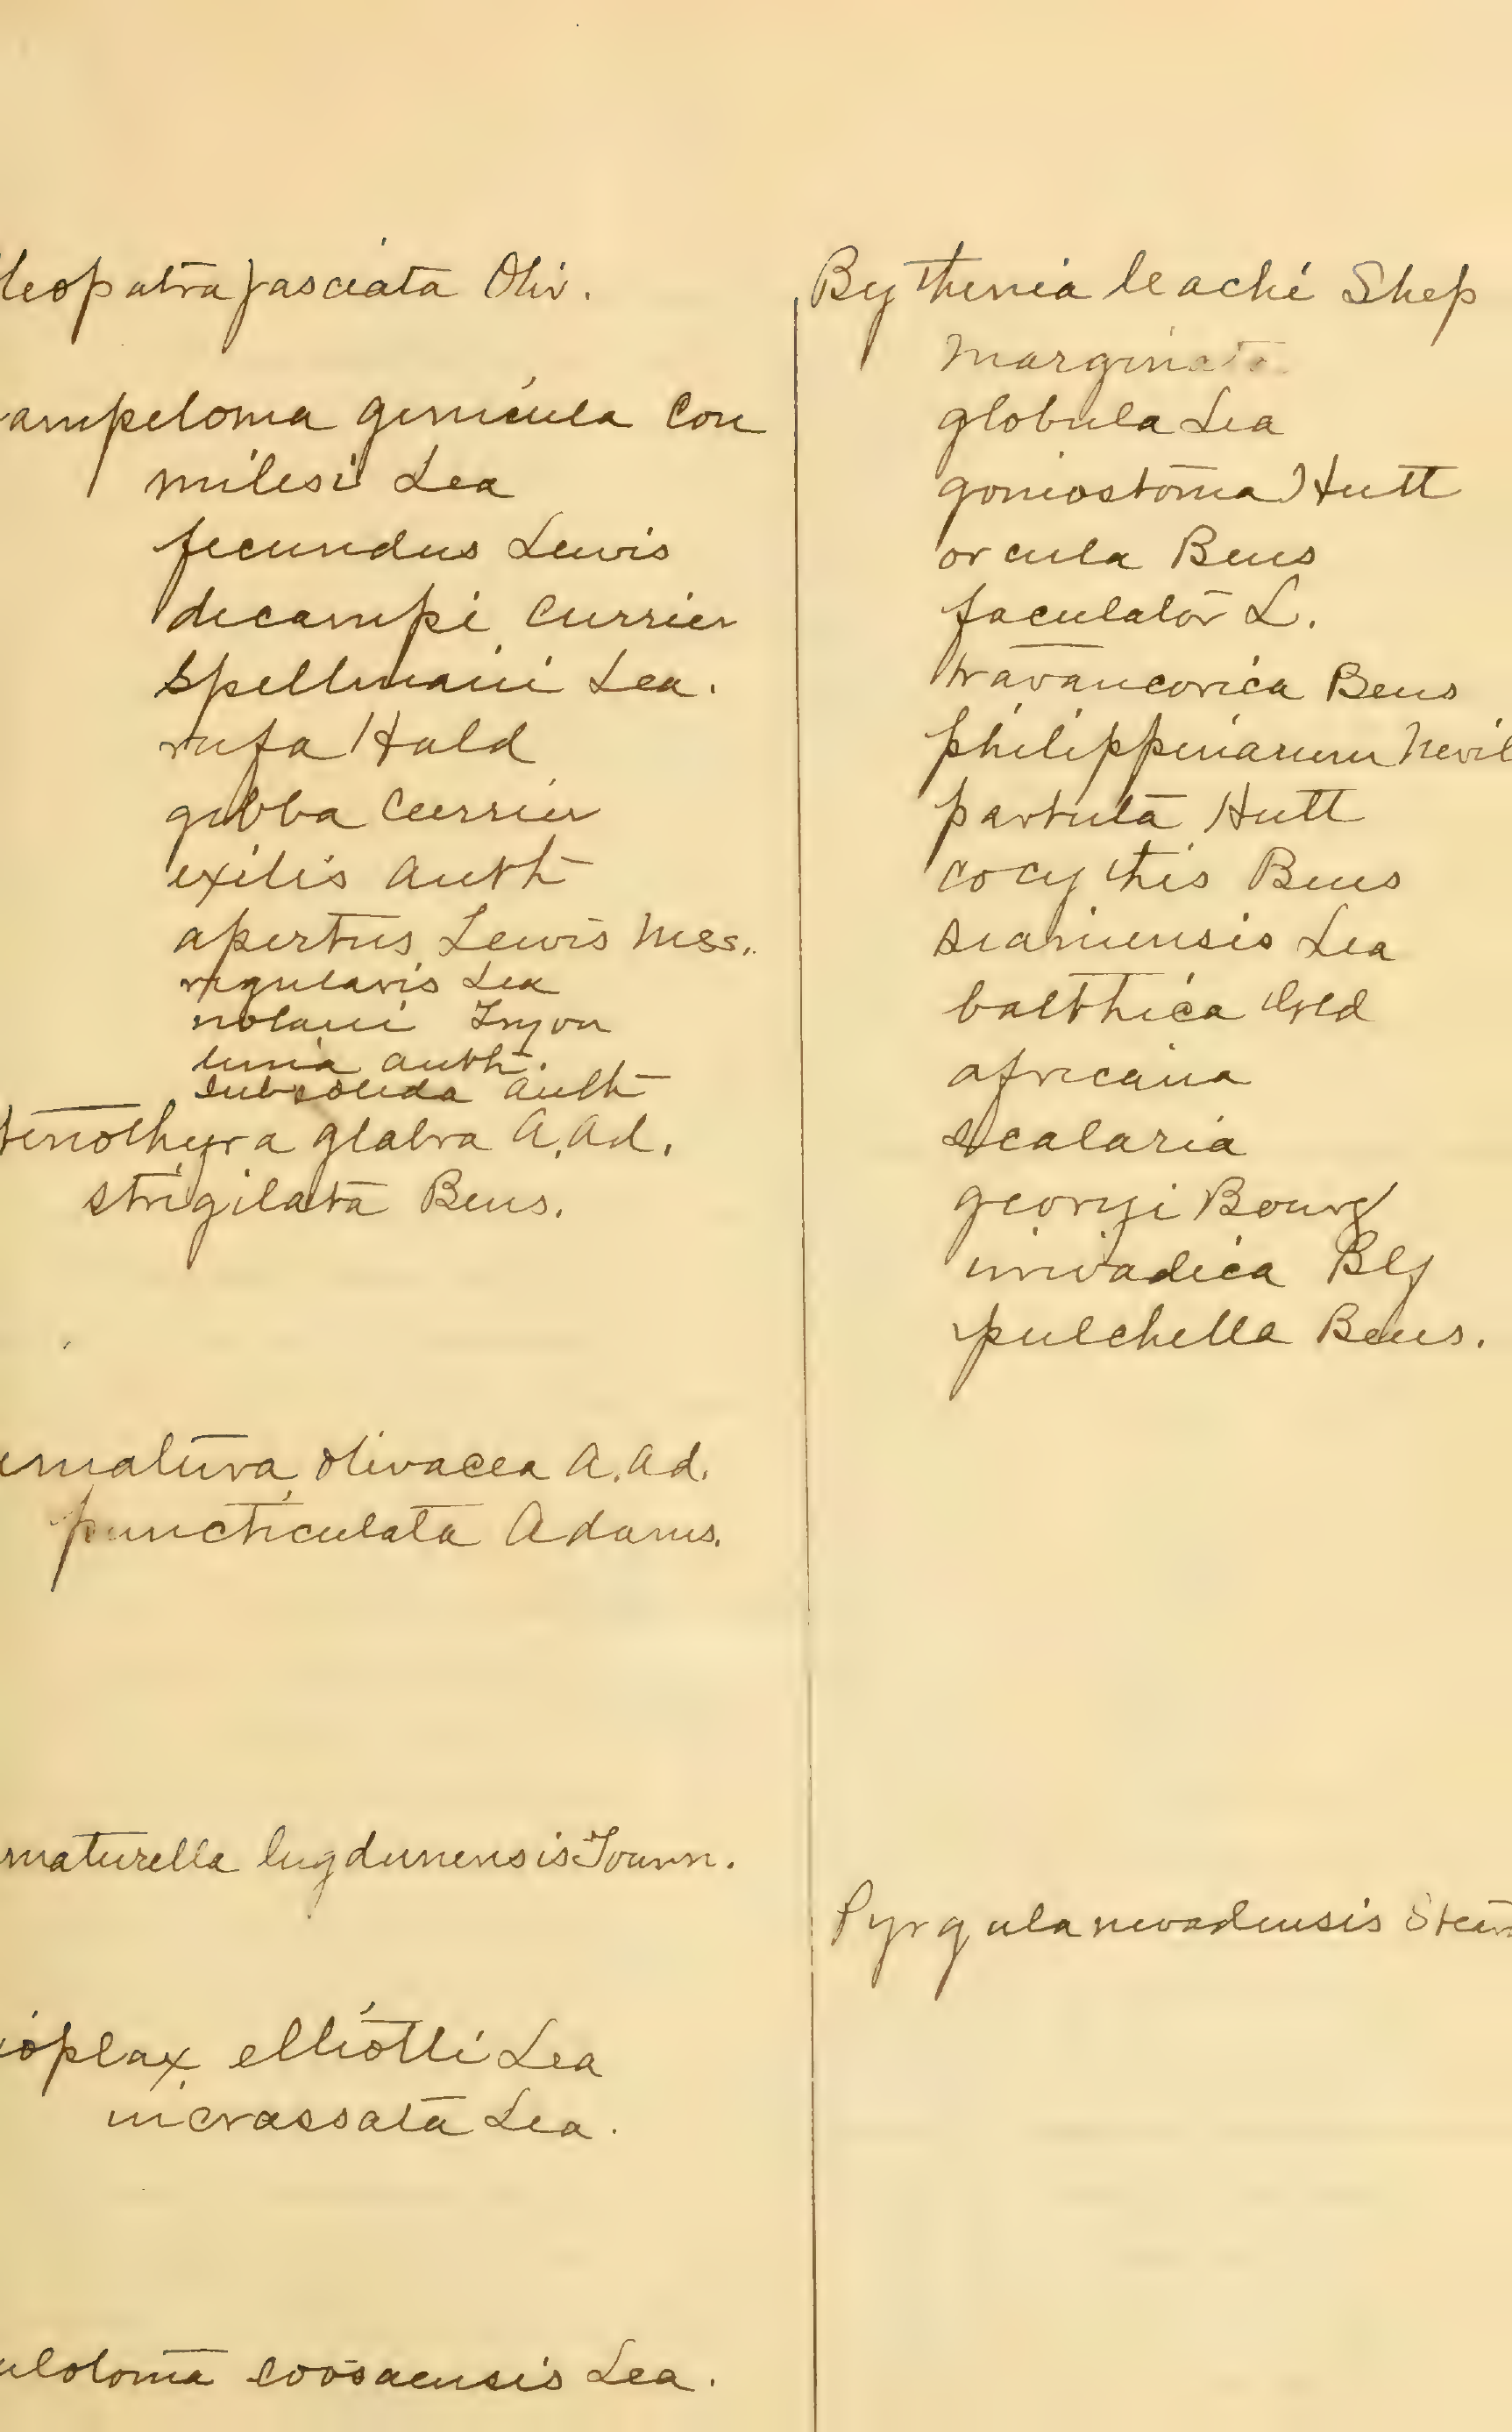 leopatra fasciata Oliv.
ampeloma genicula Con
milesi Lea
fecundus Lewis
decampi Currier
spellmani Lea.
rufa Hald
gibba Currier
exilis Anth
apertus Lewis Mss.
regularis Lea
nolani Tryon
lima Anth.
subsolida Anth
tenothyra glabra A. Ad.
strigilata Bens.
ematura olivacea A. Ad.
puncticulata Adams.
maturella lugdunensis Tourn.
ioplax elliotti Lea
incrassata Lea.
uloloma coosaensis Lea.
Bythinia leachi Shep
marginata
globula Lea
goniostoma Hutt
orcula Bens
taculator L.
travancorica Bens
philippinarum Nevil
partula Hutt
cocythis Bens
siamensis Lea
balthica
africana
scalaria
georgi Bourg
pulchella Bens.
Pyrgula nevadensis Stear